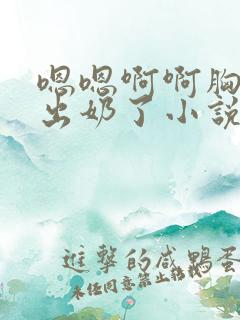 嗯嗯啊啊胸
出奶了小说
进击的咸鸭蛋
未经同意禁止转载